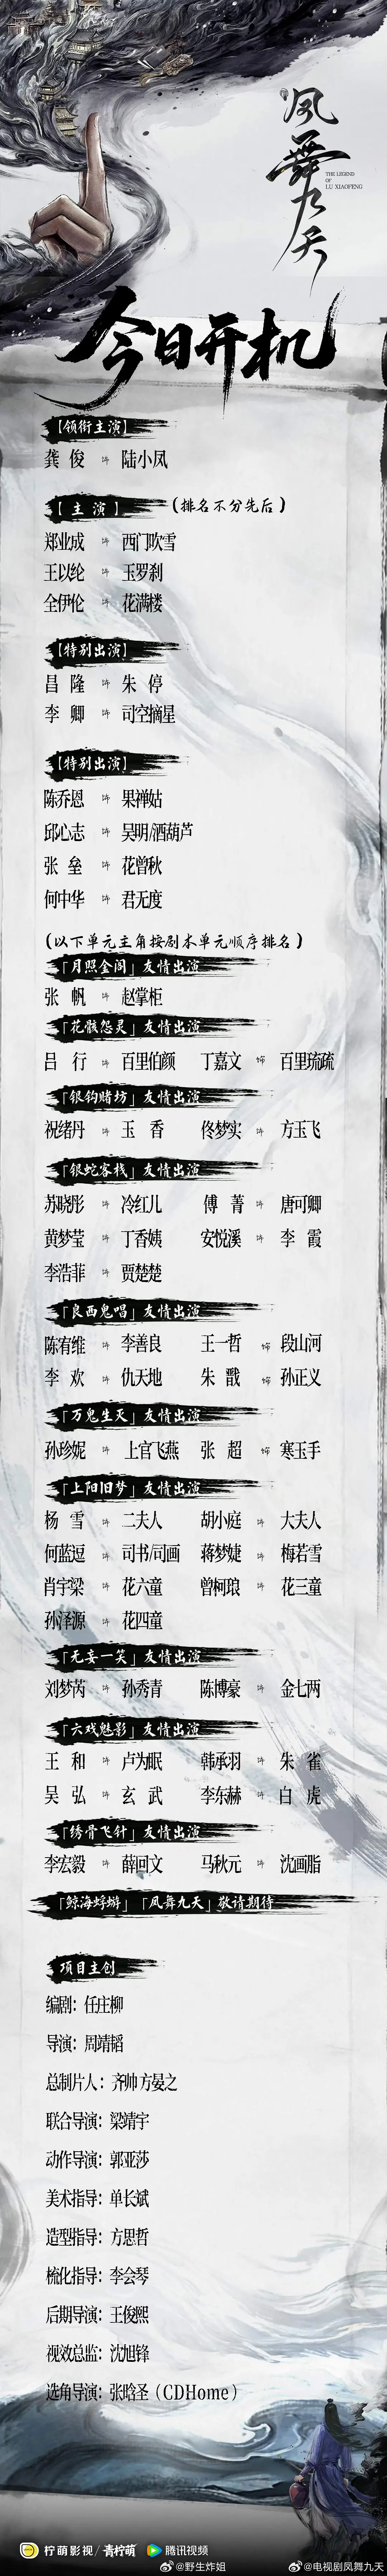 凤舞九天
THE LEGEND
OF
LU XIAOFENG
今日开机
【领衔主演】
龚俊 饰 陆小凤
【主演】（排名不分先后）
郑业成 饰 西门吹雪
王以纶 饰 玉罗刹
全伊伦 饰 花满楼
【特别出演】
昌隆 饰 朱停
李卿 饰 司空摘星
【特别出演】
陈乔恩 饰 果禅姑
邱心志 饰 吴明/洒葫芦
张垒 饰 花曾秋
何中华 饰 君无度
（以下单元主角按剧本单元顺序排名）
「月照金阁」友情出演
张帆 饰 赵掌柜
「花骸怨灵」友情出演
吕行 饰 百里伯颜 丁嘉文 饰 百里琉疏
「银钩赌坊」友情出演
祝绪丹 饰 玉香 佟梦实 饰 方玉飞
「银蛇客栈」友情出演
苏晓彤 饰 冷红儿 傅菁 饰 唐可卿
黄梦莹 饰 丁香姨 安悦溪 饰 李霞
李浩菲 饰 贾楚楚
「良西鬼唱」友情出演
陈宥维 饰 李善良 王一哲 饰 段山河
李欢 饰 仇天地 朱戬 饰 孙正义
「万鬼生灭」友情出演
孙珍妮 饰 上官飞燕 张超 饰 寒玉手
「上阳旧梦」友情出演
杨雪 饰 二夫人 胡小庭 饰 大夫人
何蓝逗 饰 司书/司画 蒋梦婕 饰 梅若雪
肖宇梁 饰 花六童 曾柯琅 饰 花三童
孙泽源 饰 花四童
「无妄一笑」友情出演
刘梦芮 饰 孙秀青 陈博豪 饰 金七两
「六戏魅影」友情出演
王和 饰 卢为眠 韩承羽 饰 朱雀
吴弘 饰 玄武 李东赫 饰 白虎
「绣骨飞针」友情出演
李宏毅 饰 薛回文 马秋元 饰 沈画脂
「鲸海蜉蝣」「凤舞九天」敬请期待
项目主创
编剧：任庄柳
导演：周靖韬
总制片人：齐帅 方晏之
联合导演：梁靖宇
动作导演：郭亚莎
美术指导：单长斌
造型指导：方思哲
梳化指导：李会琴
后期导演：王俊熙
视效总监：沈旭锋
选角导演：张晗圣（CDHome）
柠萌影视/青柠萌 腾讯视频
@野生炸姐
@电视剧凤舞九天